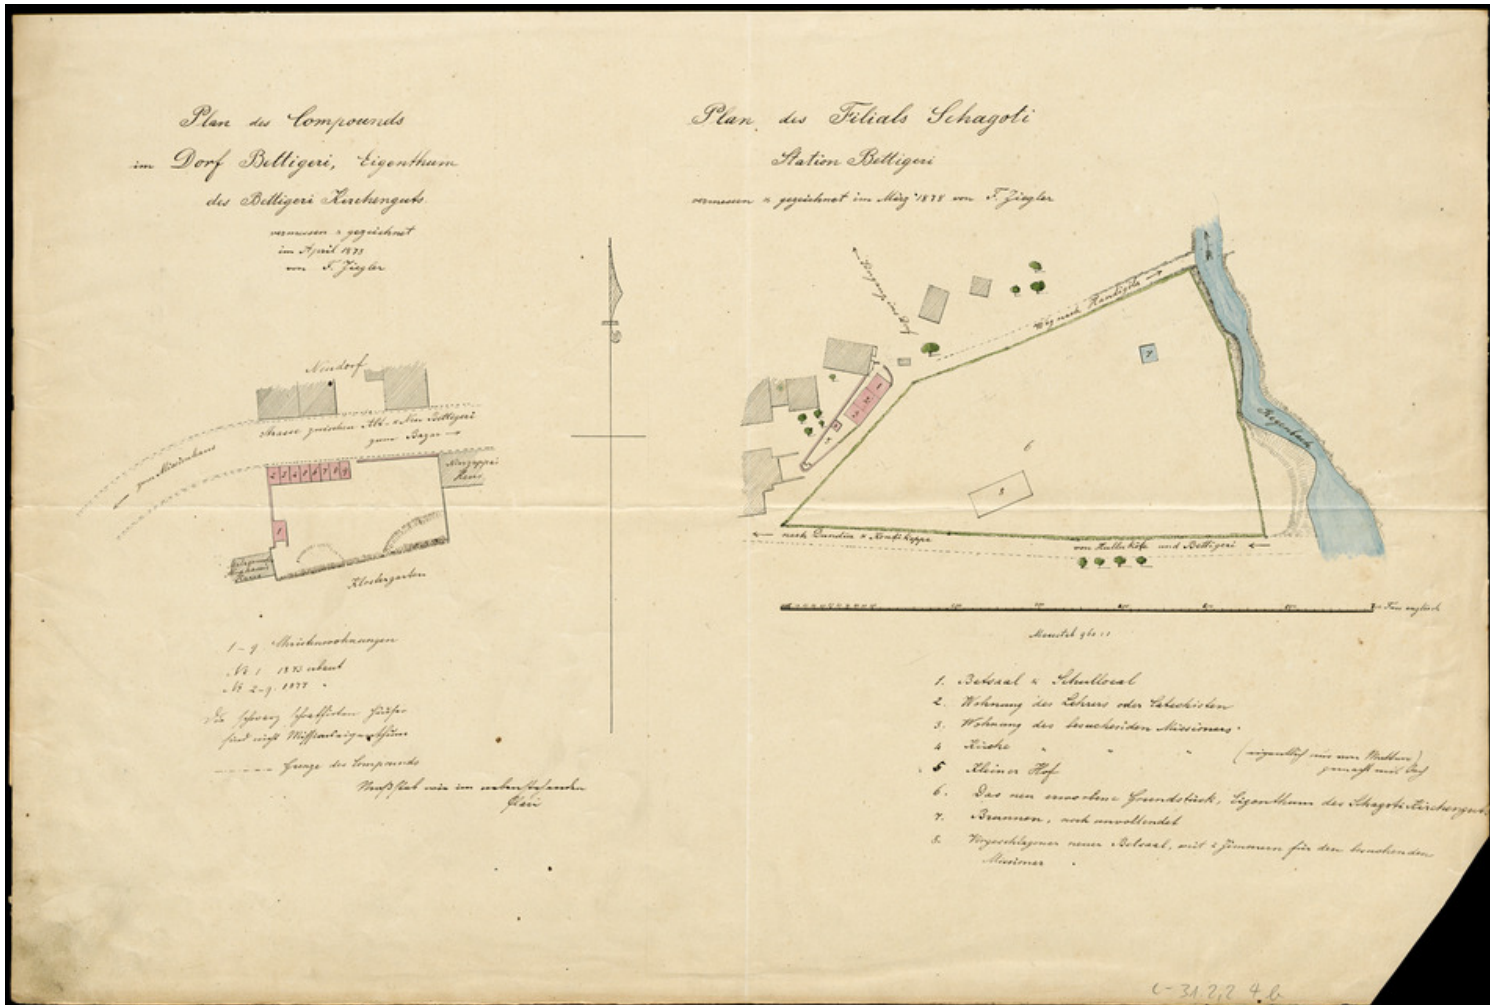 Plan des Compounds
im Dorf Bettigeri, Eigenthum
des Bettigeri Kirchenguts
vermessen & gezeichnet
im April 1878
von F. Ziegler
Neudorf
Strasse zwischen Alt- & Neu Bettigeri
zum Bazar
zum Missionshaus
2 3 4 5 6 7 8 9
1
Haus
Klostergarten
1-9.
No 1. erbaut
No 2-9. 1877 "
Die schwarz schraffirten Häuser
sind nicht Missionseigenthum
Grenze des Compounds
Maßstab wie im nebenstehenden
Plan
Plan des Filials Schagoti
Station Bettigeri
vermessen & gezeichnet im März 1878 von F. Ziegler
Weg nach
Regenbach
1
2
3
4
5
6
7
8
nach & 
von und Bettigeri
Fuss englisch
Massstab 960:1
1. Betsaal & Schullocal
2. Wohnung des Lehrers oder Catechisten
3. Wohnung des besuchenden Missionars
4 Küche " " " (eigentlich nur von Matten
gemacht mit Dach)
5 Kleiner Hof
6. Das neu erworbene Grundstück, Eigenthum des Schagoti Kirchenguts
7. Brunnen, noch unvollendet
8. Vorgeschlagener neuer Betsaal, mit 2 Zimmern für den besuchenden
Missionar
C-31.2,2 4 b